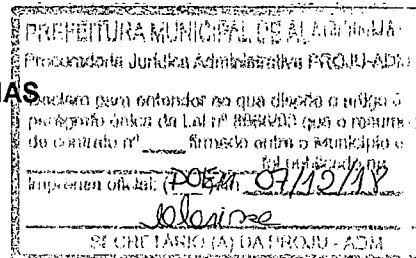 PREFEITURA MUNICIPAL DE ALAGOINHAS
Procuradoria Jurídica Administrativa PROJU-ADM
AS
Declaro para entender ao que dispõe o artigo
parágrafo único da Lei nº que o resumo
do contrato nº firmado entre o Município e
foi publicado na
Imprensa oficial: (DOEM) 07/12/18
SECRETÁRIO (A) DA PROJU - ADM